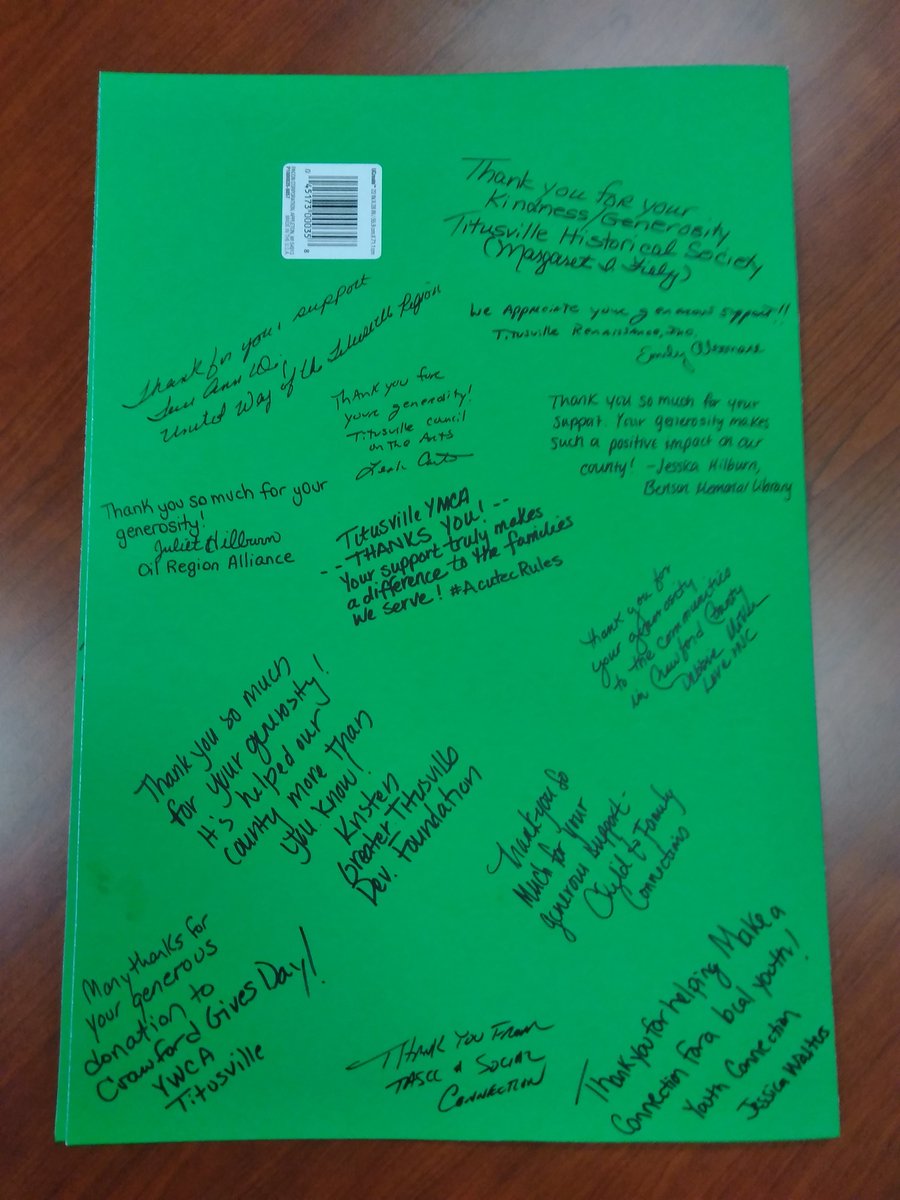 Thank you for your
Kindness/Generosity
Titusville Historical Society
(Margaret
We Appreciate your generous support!!
Titusville Renaissance, Inc.
Emily
Thank for your support
United Way of the Titusville Region
Thank you fore
youre generosity!
Titusville council
on the Arts
Thank you so much for your
support. Your generosity makes
such a positive impact on our
county! -Jessica Hilburn,
Benson Memorial Library
Thank you so much for your
generosity!
Juliet Hilburn
Oil Region Alliance
Titusville YMCA
-- THANKS YOU! --
Your support truly makes
a difference to the families
we serve! #AcutecRules
thank you for
your generosity
to the communities
in Crawford County
Love INC
Thank you so much
for your generosity!
It's helped our
county more than
you know!
Kristen
Greater Titusville
Dev. Foundation
Thank you so
much for your
generous support-
Child to Family
Connections
Many thanks for
your generous
donation to
Crawford Gives Day!
YWCA
Titusville
Thank You From
TASCC & Social
Connection
Thank you for helping Make a
Connection for a local youth!
Youth Connection
Jessica